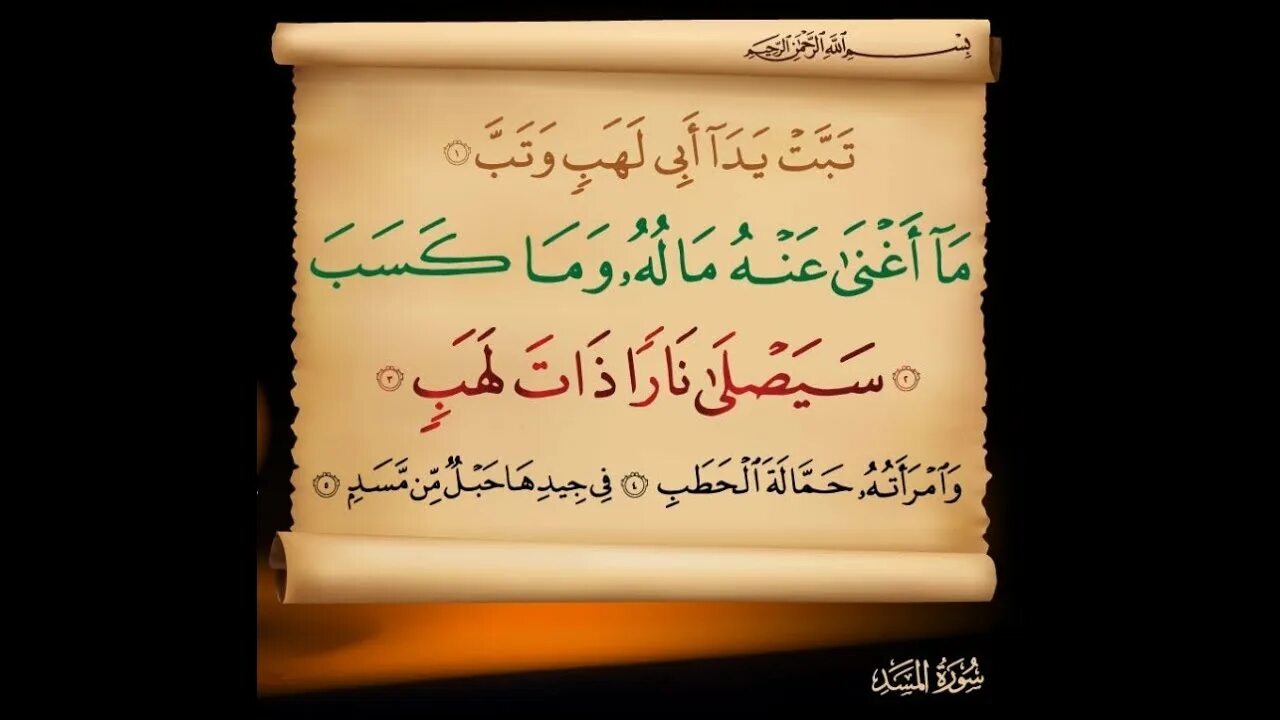 بِسْمِ اللَّهِ الرَّحْمَٰنِ الرَّحِيمِ
تَبَّتْ يَدَآ أَبِى لَهَبٍ وَتَبَّ ١
مَآ أَغْنَىٰ عَنْهُ مَالُهُۥ وَمَا كَسَبَ
٢ سَيَصْلَىٰ نَارًا ذَاتَ لَهَبٍ ٣
وَٱمْرَأَتُهُۥ حَمَّالَةَ ٱلْحَطَبِ ٤ فِى جِيدِهَا حَبْلٌ مِّن مَّسَدٍ ٥
سُورَةُ المَسَدِ